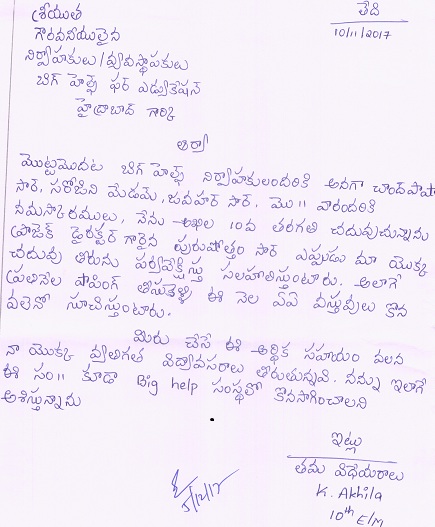 శ్రీయుత
గౌరవనీయులైన
నిర్వాహకులు/వ్యవస్థాపకులు
బిగ్ హెల్ప్ ఫర్ ఎడ్యుకేషన్
హైద్రాబాద్ గార్కి
తేది
10/11/2017
ఆర్యా
మొట్టమొదట బిగ్ హెల్ప్ నిర్వాహకులందరికి అనగా చాంద్‌పాషా
సార్, సరోజిని మేడమ్, జవహర్ సార్, మొ॥ వారందరికి
నమస్కారములు, నేను అఖిల 10వ తరగతి చదువుచున్నాను
ప్రాజెక్ట్ డైరక్టర్ గారైన పురుషోత్తం సార్ ఎప్పుడు మా యొక్క
చదువు తీరును పర్యవేక్షిస్తు సలహాలిస్తుంటారు. అలాగే
ప్రతినెల షాపింగ్ తీసుకెళ్ళి ఈ నెల ఏఏ వస్తువులు కొన
వలెనో సూచిస్తుంటారు.
మిరు చేసే ఈ ఆర్థిక సహాయం వలన
నా యొక్క వ్యక్తిగత విద్యావసరాలు తీరుతున్నవి. నన్ను ఇలాగే
ఈ సం॥ కూడా Big help సంస్థలో కొనసాగించాలని
ఆశిస్తున్నాను
ఇట్లు
తమ విధేయురాలు
K. Akhila
10th E/M